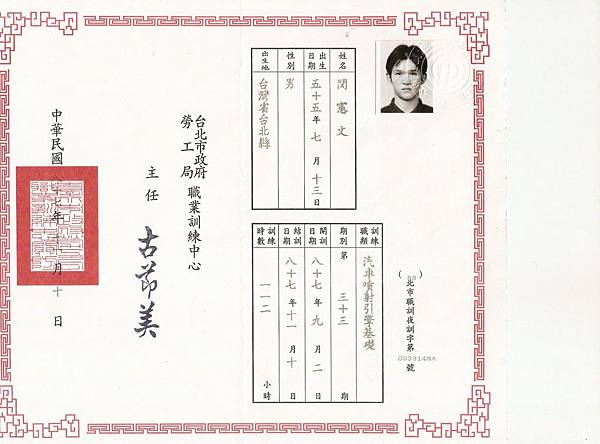 姓名 閔憲文
出生日期 五十五年七月十三日
性別 男
出生地 台灣省台北縣
(88)北市職訓夜訓字第093314NA號
訓練職類 汽車噴射引擎基礎
期別 第三十三期
開訓日期 八十七年九月二日
結訓日期 八十七年十一月十日
訓練時數 一一二小時
台北市政府
勞工局
職業訓練中心
主任
中華民國八十七年十一月十日